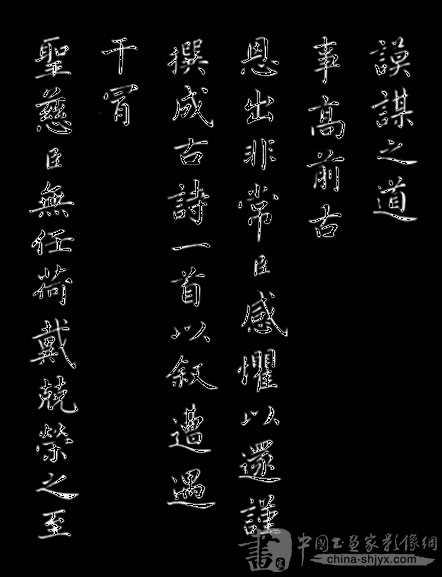 謨謀之道
事高前古
恩出非常臣感懼以還謹
撰成古詩一首以叙遭遇
干冒
聖慈臣無任荷戴兢榮之至
中國書画家影像網
china-shjyx.com